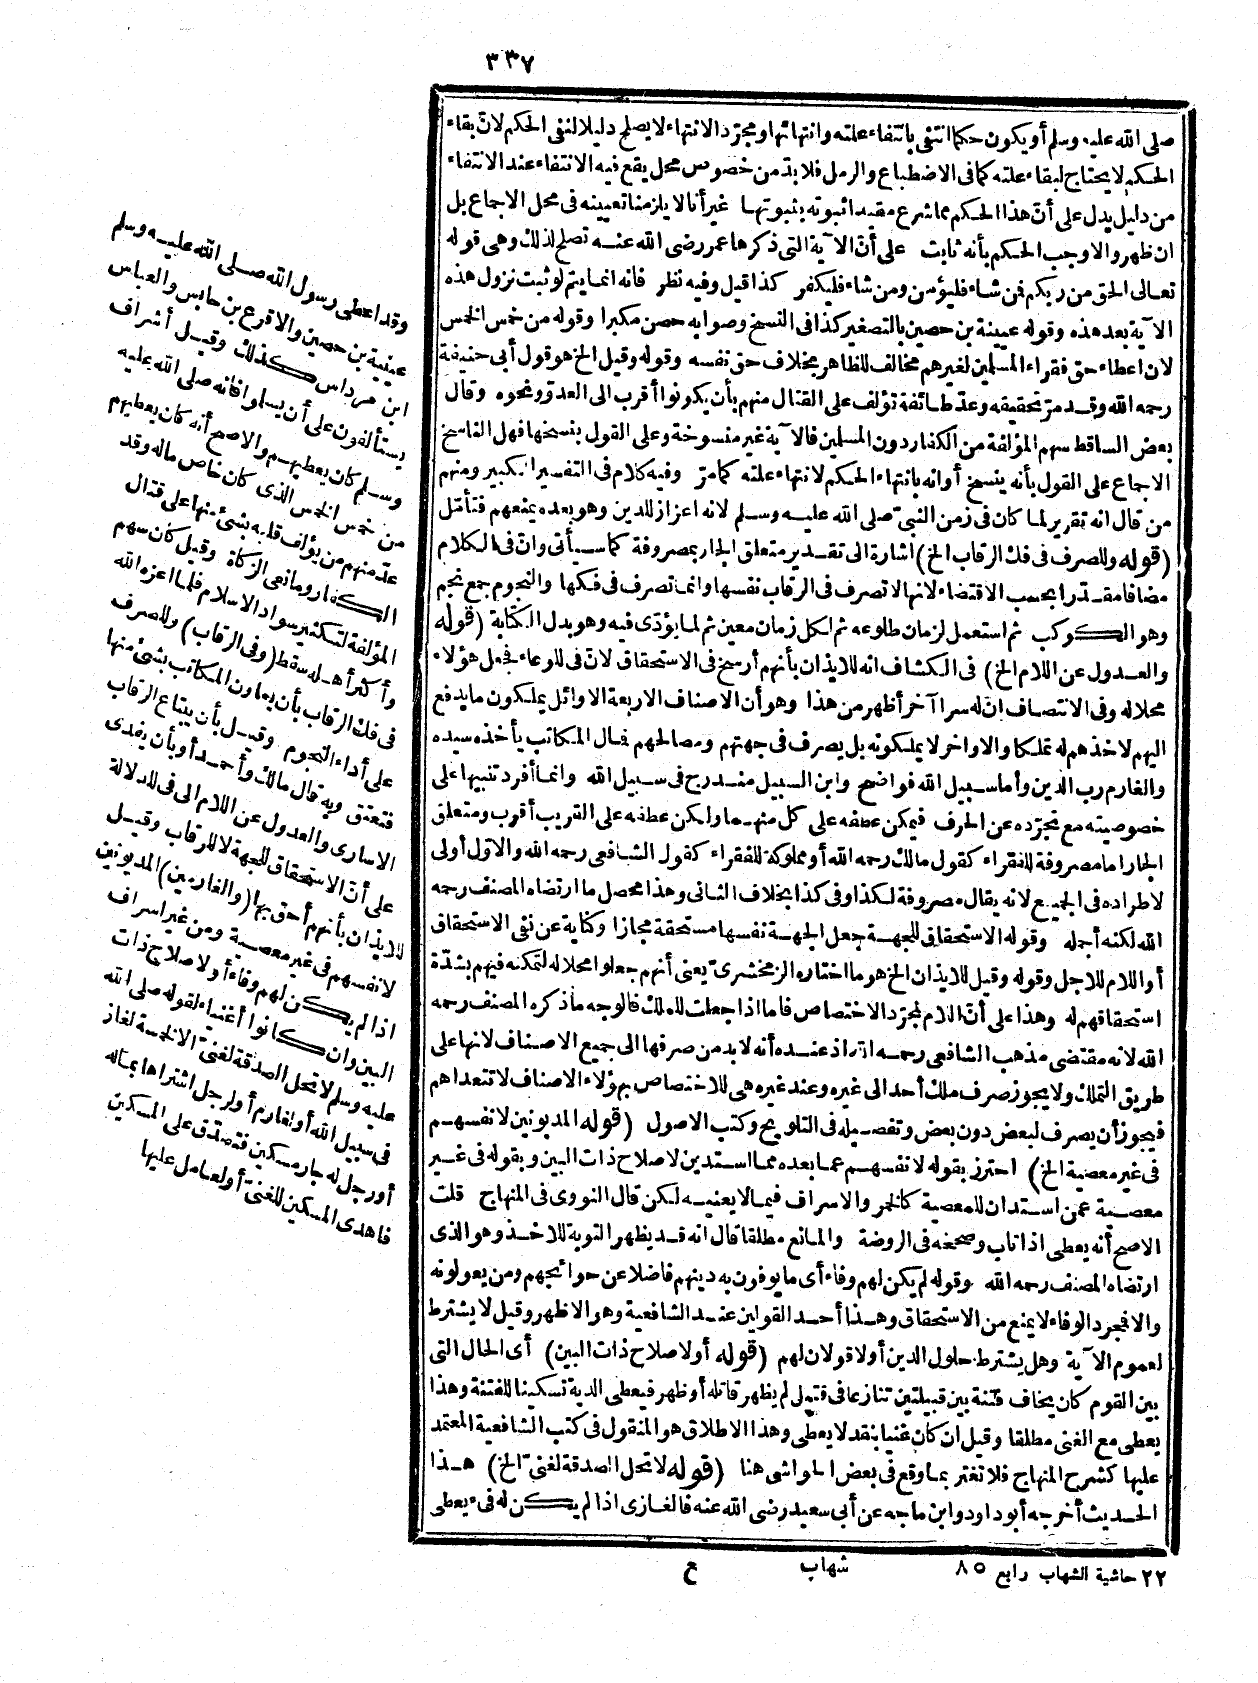 ٣٣٧
صلى الله عليه وسلم أو يكون حكما انتفى بانتفاء علته وانتهائها ومجرّد الانتهاء لا يصلح دليلا لنفي الحكم لانّ بقاء
الحكم لا يحتاج لبقاء علته كما فى الاضطباع والرمل فلا بدّ من خصوص محل يقع فيه الانتفاء عند الانتفاء
من دليل يدل على أنّ هذا الحكم مما شرع مقيدا ثبوته بثبوتها غير أنا لا يلزمنا تعيينه فى محل الاجماع بل
ان ظهر والا وجب الحكم بأنه ثابت على أنّ الآية التى ذكرها عمر رضى الله عنه تصلح لذلك وهى قوله
تعالى الحق من ربكم فمن شاء فليؤمن ومن شاء فليكفر كذا قيل وفيه نظر فانه انما يتم لو ثبت نزول هذه
الآية بعد هذه وقوله عيينة بن حصين بالتصغير كذا فى النسخ وصوابه حصن مكبرا وقوله من خمس الخمس
لان اعطاء حق فقراء المسلمين لغيرهم مخالف للظاهر بخلاف حق نفسه وقوله وقيل الخ هو قول أبى حنيفة
رحمه الله وقد مرّ تحقيقه وعدّ طائفة تؤلف على القتال منهم بأن يكونوا أقرب الى العدوّ ونحوه وقال
بعض الساقط سهم المؤلفة من الكفار دون المسلمين فالآية غير منسوخة وعلى القول بنسخها فهل الناسخ
الاجماع على القول بأنه ينسخ أوانه بانتهاء الحكم لانتهاء علته كما مرّ وفيه كلام فى التفسير الكبير ومنهم
من قال انه تقرير لما كان فى زمن النبىّ صلى الله عليه وسلم لانه اعزاز للدين وهو بعده بمنعهم فتأمّل
(قوله وللصرف فى فك الرقاب الخ) اشارة الى تقدير متعلق الجار بمصروفة كما سيأتى وانّ فى الكلام
مضافا مقدّرا بحسب الاقتضاء لانها لا تصرف فى الرقاب نفسها وانما تصرف فى فكها والنجوم جمع نجم
وهو الكوكب ثم استعمل لزمان طلوعه ثم لكل زمان معين ثم لما يؤدّى فيه وهو بدل الكتابة (قوله
والعدول عن اللام الخ) فى الكشاف انه للايذان بأنهم أرسخ فى الاستحقاق لانّ فى للوعاء فجعل هؤلاء
محلا له وفى الانتصاف انّ له سرا آخر أظهر من هذا وهو أن الاصناف الاربعة الاوائل يملكون ما يدفع
اليهم لاخذهم له تملكا والاواخر لا يملكونه بل يصرف فى جهتهم ومصالحهم فمال المكاتب يأخذه سيده
والغارم رب الدين وأما سبيل الله فواضح وابن السبيل مندرج فى سبيل الله وانما أفرد تنبيها على
خصوصيته مع تجرّده عن الحرف فيمكن عطفه على كل منهما ولكن عطفه على القريب أقرب ومتعلق
الجار اما مصروفة للفقراء كقول مالك رحمه الله أو مملوكة للفقراء كقول الشافعى رحمه الله والاوّل أولى
لاطراده فى الجميع لانه يقال مصروفة لكذا وفى كذا بخلاف الثانى وهذا محصل ما ارتضاه المصنف رحمه
الله لكنه أجمله وقوله الاستحقاق للجهة جعل الجهة نفسها مستحقة مجازا وكناية عن نفى الاستحقاق
أو اللام للاجل وقوله وقيل للايذان الخ هو ما اختاره الزمخشرى يعنى أنهم جعلوا محلا له لتمكنه فيهم بشدّة
استحقاقهم له وهذا على أنّ اللام لمجرّد الاختصاص فاما اذا جعلت للملك فالوجه ما ذكره المصنف رحمه
الله لانه مقتضى مذهب الشافعى رحمه الله اذ عنده أنه لا بد من صرفها الى جميع الاصناف لانها على
طريق التملك ولا يجوز صرف ملك أحد الى غيره وعند غيره هى للاختصاص بهؤلاء الاصناف لا تتعداهم
فيجوز أن يصرف لبعض دون بعض وتفصيله فى التلويح وكتب الاصول (قوله المديونين لانفسهم
فى غير معصية الخ) احترز بقوله لانفسهم عما بعده مما استدين لاصلاح ذات البين وبقوله فى غير
معصية عمن استدان للمعصية كالخمر والاسراف فيما لا يعنيه لكن قال النووى فى المنهاج قلت
الاصح أنه يعطى اذا تاب وصححه فى الروضة والمانع مطلقا قال انه قد يظهر التوبة للاخذ وهو الذى
ارتضاه المصنف رحمه الله وقوله لم يكن لهم وفاء أى ما يوفون به دينهم فاضلا عن حوائجهم ومن يعولونه
والا فمجرد الوفاء لا يمنع من الاستحقاق وهذا أحد القولين عند الشافعية وهو الاظهر وقيل لا يشترط
لعموم الآية وهل يشترط حلول الدين أولا قولان لهم (قوله أو لاصلاح ذات البين) أى الحال التى
بين القوم كان يخاف فتنة بين قبيلتين تنازعا فى قتيل لم يظهر قاتله أو ظهر فيعطى الدية تسكينا للفتنة وهذا
يعطى مع الغنى مطلقا وقيل ان كان غنيا بنقد لا يعطى وهذا الاطلاق هو المنقول فى كتب الشافعية المعتمد
عليها كشرح المنهاج فلا تغتر بما وقع فى بعض الحواشى هنا (قوله لا تحل الصدقة لغنىّ الخ) هذا
الحديث أخرجه أبو داود وابن ماجه عن أبى سعيد رضى الله عنه فالغازى اذا لم يكن له فىء يعطى
٢٢ حاشية الشهاب رابع ٨٥ شهاب ع
وقد اعطى رسول الله صلى الله عليه وسلم
عيينة بن حصين والاقرع بن حابس والعباس
ابن مرداس كذلك وقيل أشراف
يستألفون على أن يسلموا فانه صلى الله عليه
وسلم كان يعطيهم والاصح أنه كان يعطيهم
من خمس الخمس الذى كان خاص ماله وقد
عدّ منهم من يؤلف قلبه بشئ منها على قتال
الكفار ومانعى الزكاة وقيل كان سهم
المؤلفة لتكثير سواد الاسلام فلما اعزه الله
وأكثر أهله سقط (وفى الرقاب) وللصرف
فى فك الرقاب بأن يعاون المكاتب بشئ منها
على أداء النجوم وقيل بأن يبتاع الرقاب
فتعتق وبه قال مالك وأحمد أو بأن يفدى
الاسارى والعدول عن اللام الى فى للدلالة
على أنّ الاستحقاق للجهة لا للرقاب وقيل
للايذان بأنهم أحق بها (والغارمين) المديونين
لانفسهم فى غير معصية ومن غير اسراف
اذا لم يكن لهم وفاء أو لاصلاح ذات
البين وان كانوا أغنياء لقوله صلى الله
عليه وسلم لا تحل الصدقة لغنىّ الا لخمسة لغاز
فى سبيل الله أو لغارم أو لرجل اشتراها بماله
أو رجل له جار مسكين فتصدّق على المسكين
فاهدى المسكين للغنىّ أو لعامل عليها